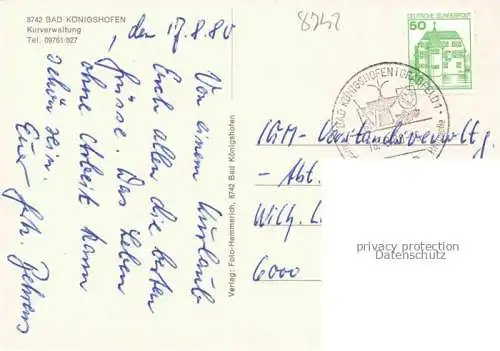 8742 BAD KÖNIGSHOFEN
Kurverwaltung
Tel. 09761/827
8742
DEUTSCHE BUNDESPOST
50
BAD KÖNIGSHOFEN I GRABFELD 1
, den 17.8.80
Von einem Kurlaub
Euch allen die besten
Grüsse. Das Leben
ohne Arbeit kann
schön sein.
Euer Behrens
Verlag: Foto-Hemmerich, 8742 Bad Königshofen
Abt.
Wilh. L
6000
privacy protection
Datenschutz